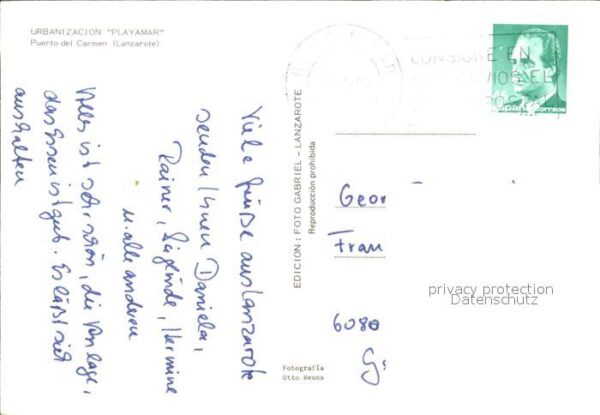 URBANIZACION "PLAYAMAR"
Puerto del Carmen (Lanzarote)
CONSIGNE EN
ENVIOS EL
España correos
Viele Grüße aus Lanzarote
senden Ihnen Daniela,
Rainer, Hermine
u. alle anderen
Alles ist sehr schön, die Anlage,
das Essen ist gut. Es läßt sich
aushalten
EDICION: FOTO GABRIEL - LANZAROTE
Reproducción prohibida
Geor
Fran
6080
privacy protection
Datenschutz
Fotografía
Otto Reuss